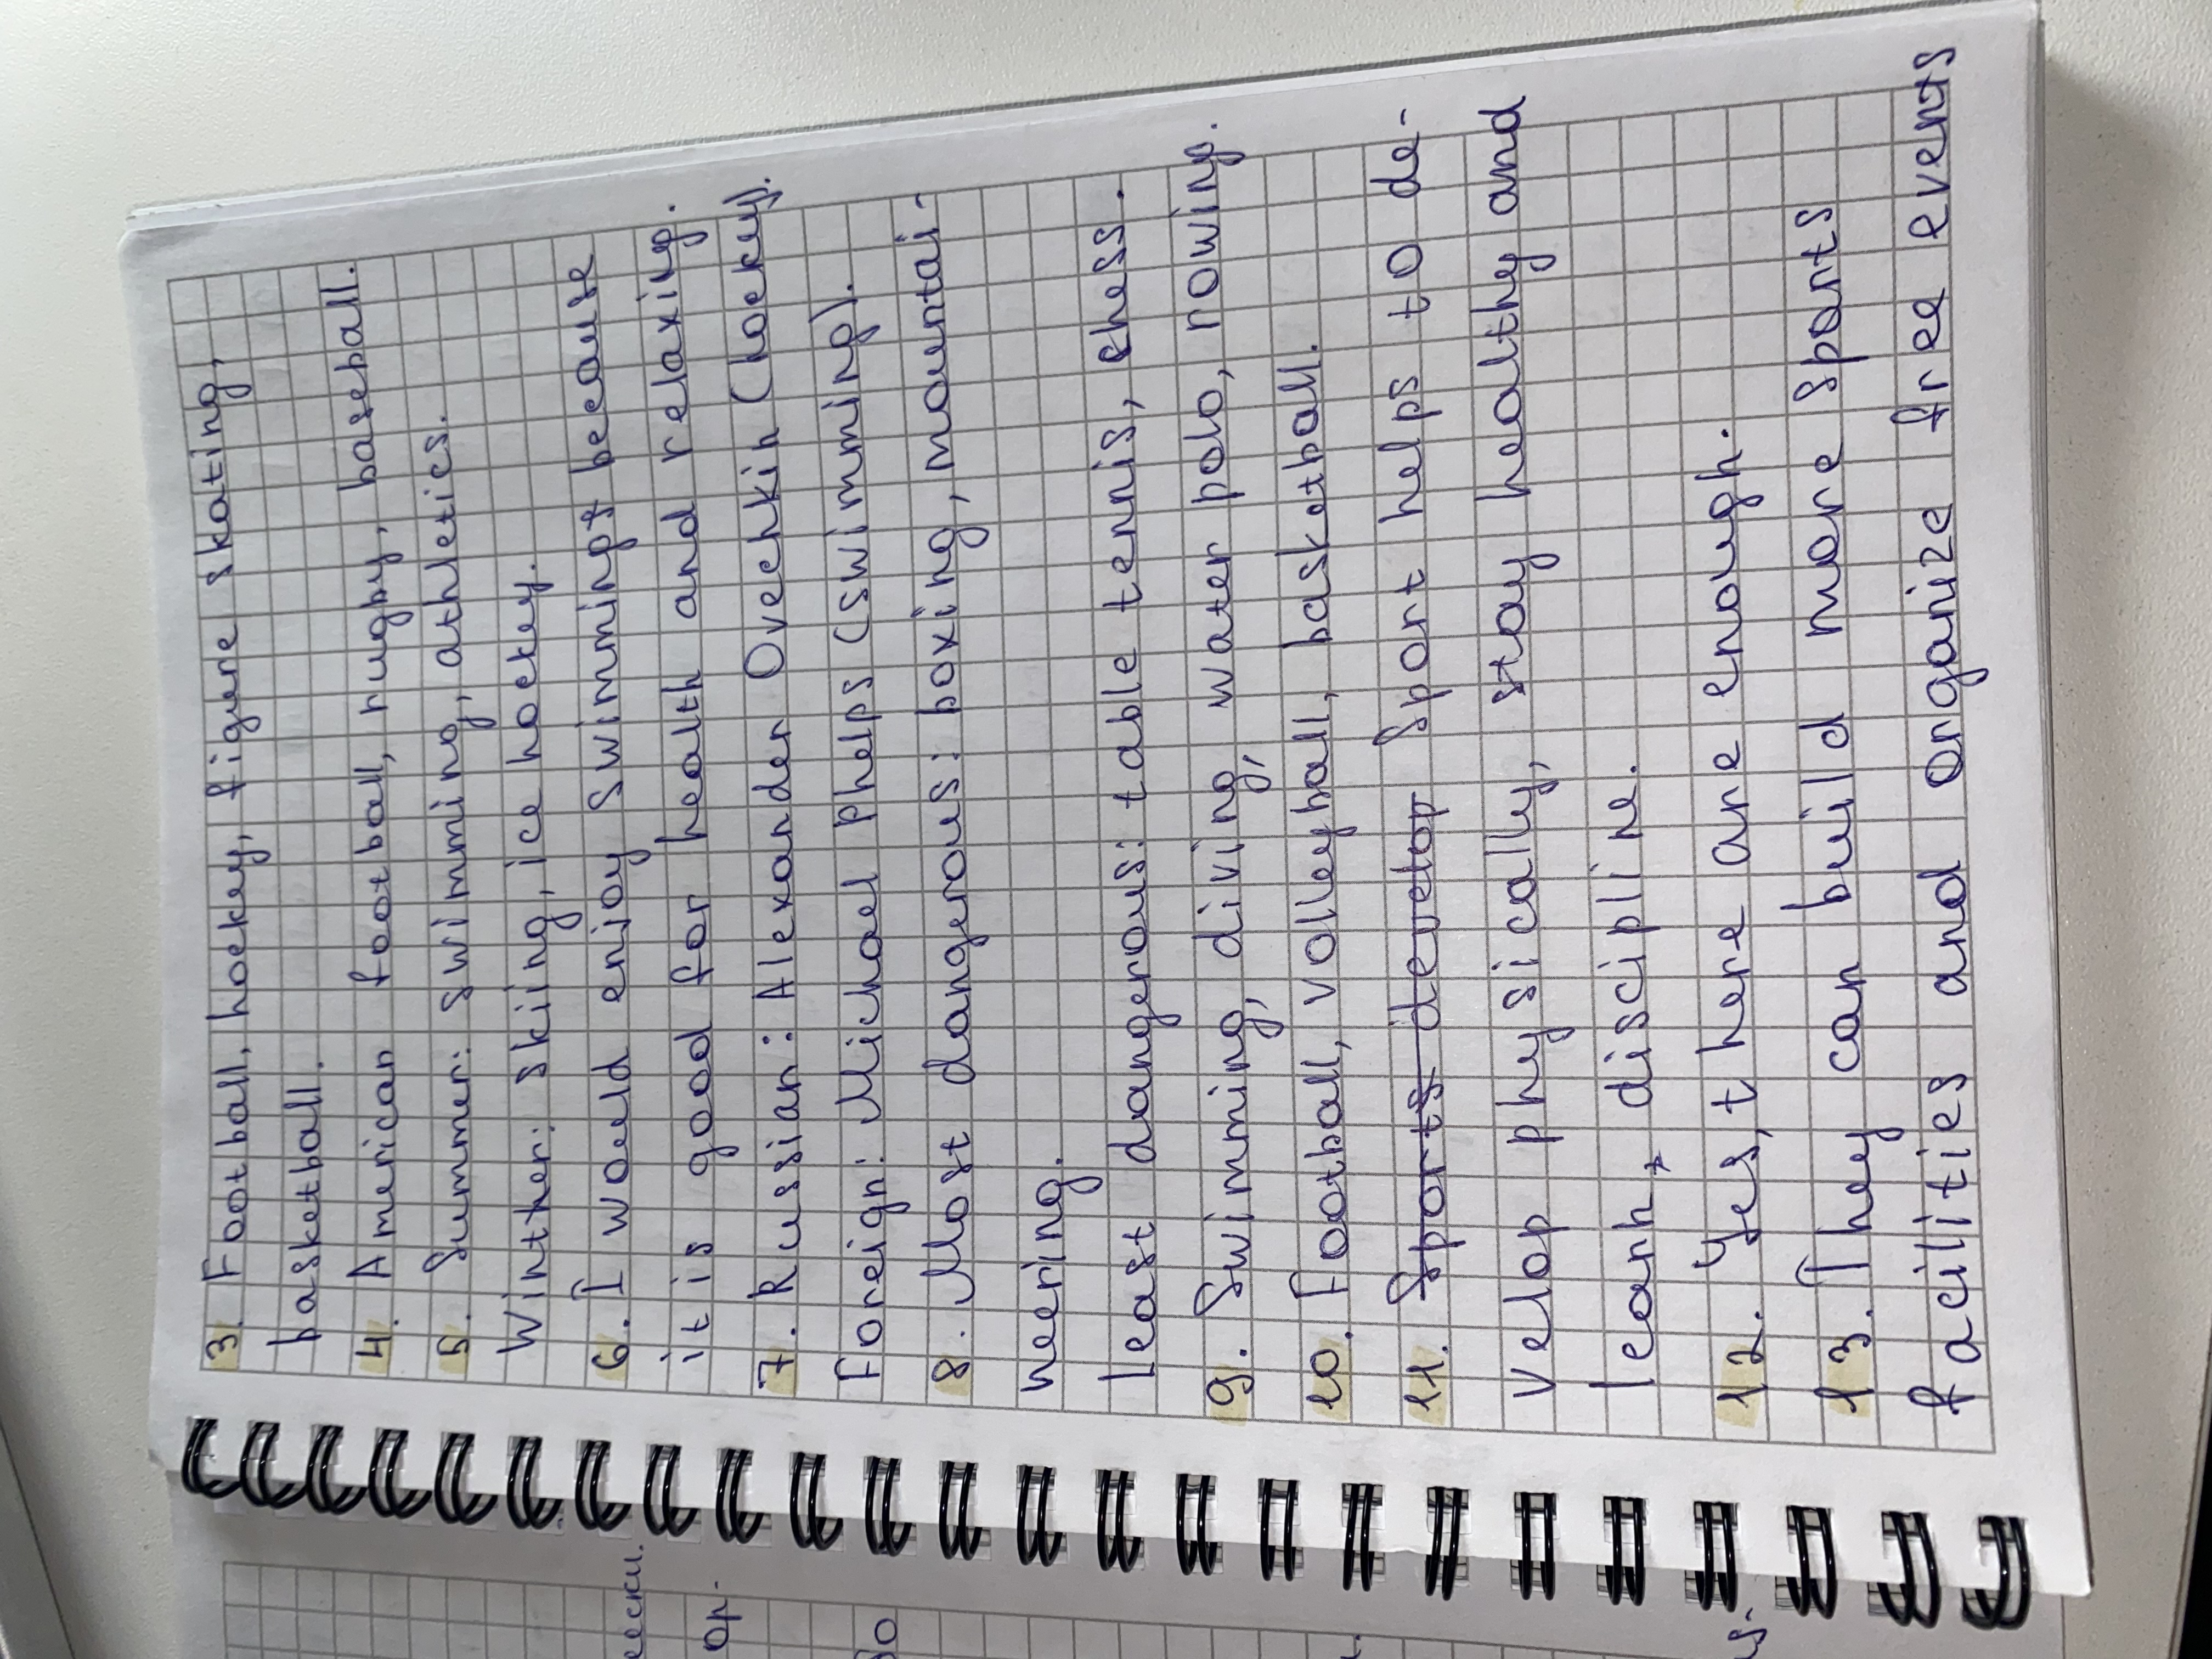 3. Football, hockey, figure skating,
basketball.
4. American football, rugby, baseball.
5. Summer: swimming, athletics.
Winther: skiing, ice hockey.
6. I would enjoy swimmings because
it is good for health and relaxing.
7. Russian: Alexander Ovechkin (hockey).
Foreign: Michael Phelps (swimming).
8. Most dangerous: boxing, mountai-
neering.
Least dangerous: table tennis, chess.
9. Swimming, diving, water polo, rowing.
10. Football, volleyball, basketball.
11. Sports develop Sport helps to de-
velop physically, stay healthy and
learn discipline.
12. Yes, there are enough.
13. They can build more sports
facilities and organize free events
ески.
ор.